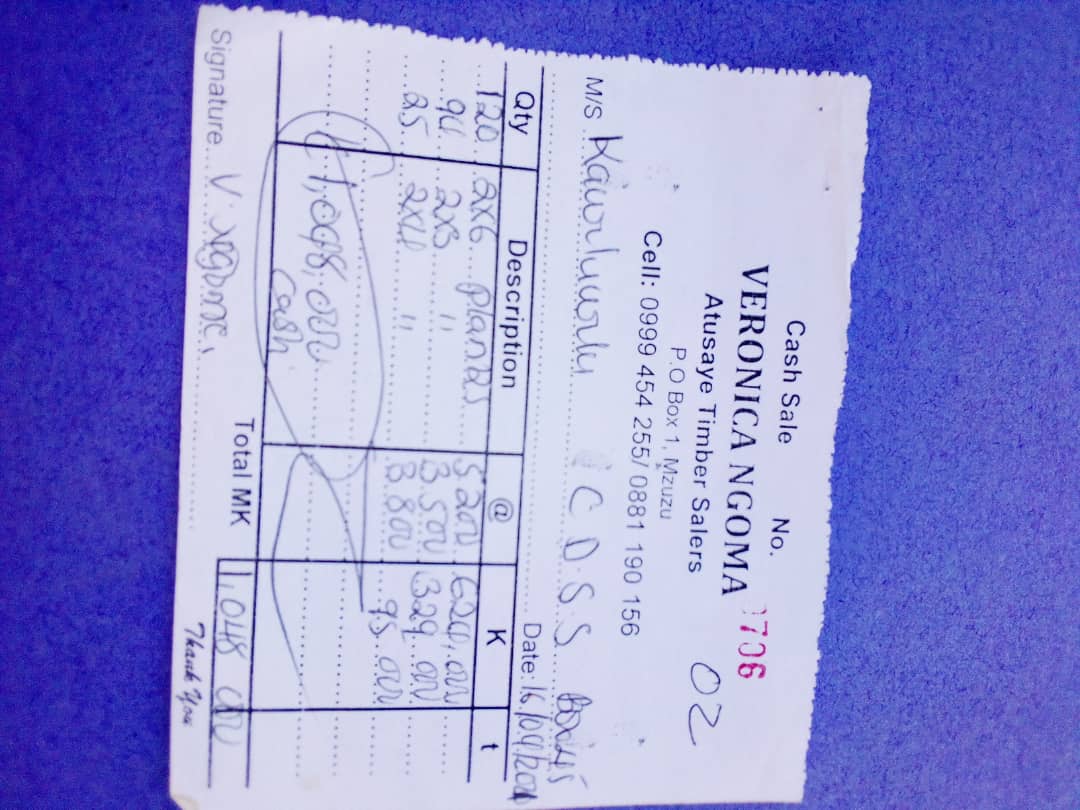 Cash Sale No. 1706
VERONICA NGOMA
Atusaye Timber Salers 02
P.O Box 1, Mzuzu
Cell: 0999 454 255/ 0881 190 156
M/S Kawuluwulu C.D.S.S
Date: 16/09/
Qty Description @ K t
120 2x6 Planks 5200 624,000
94 2x8 " 3500 329.000
25 2x4 " 3800 95.000
Cash
Total MK 1,048 000
Signature V. Ngoma
Thank You